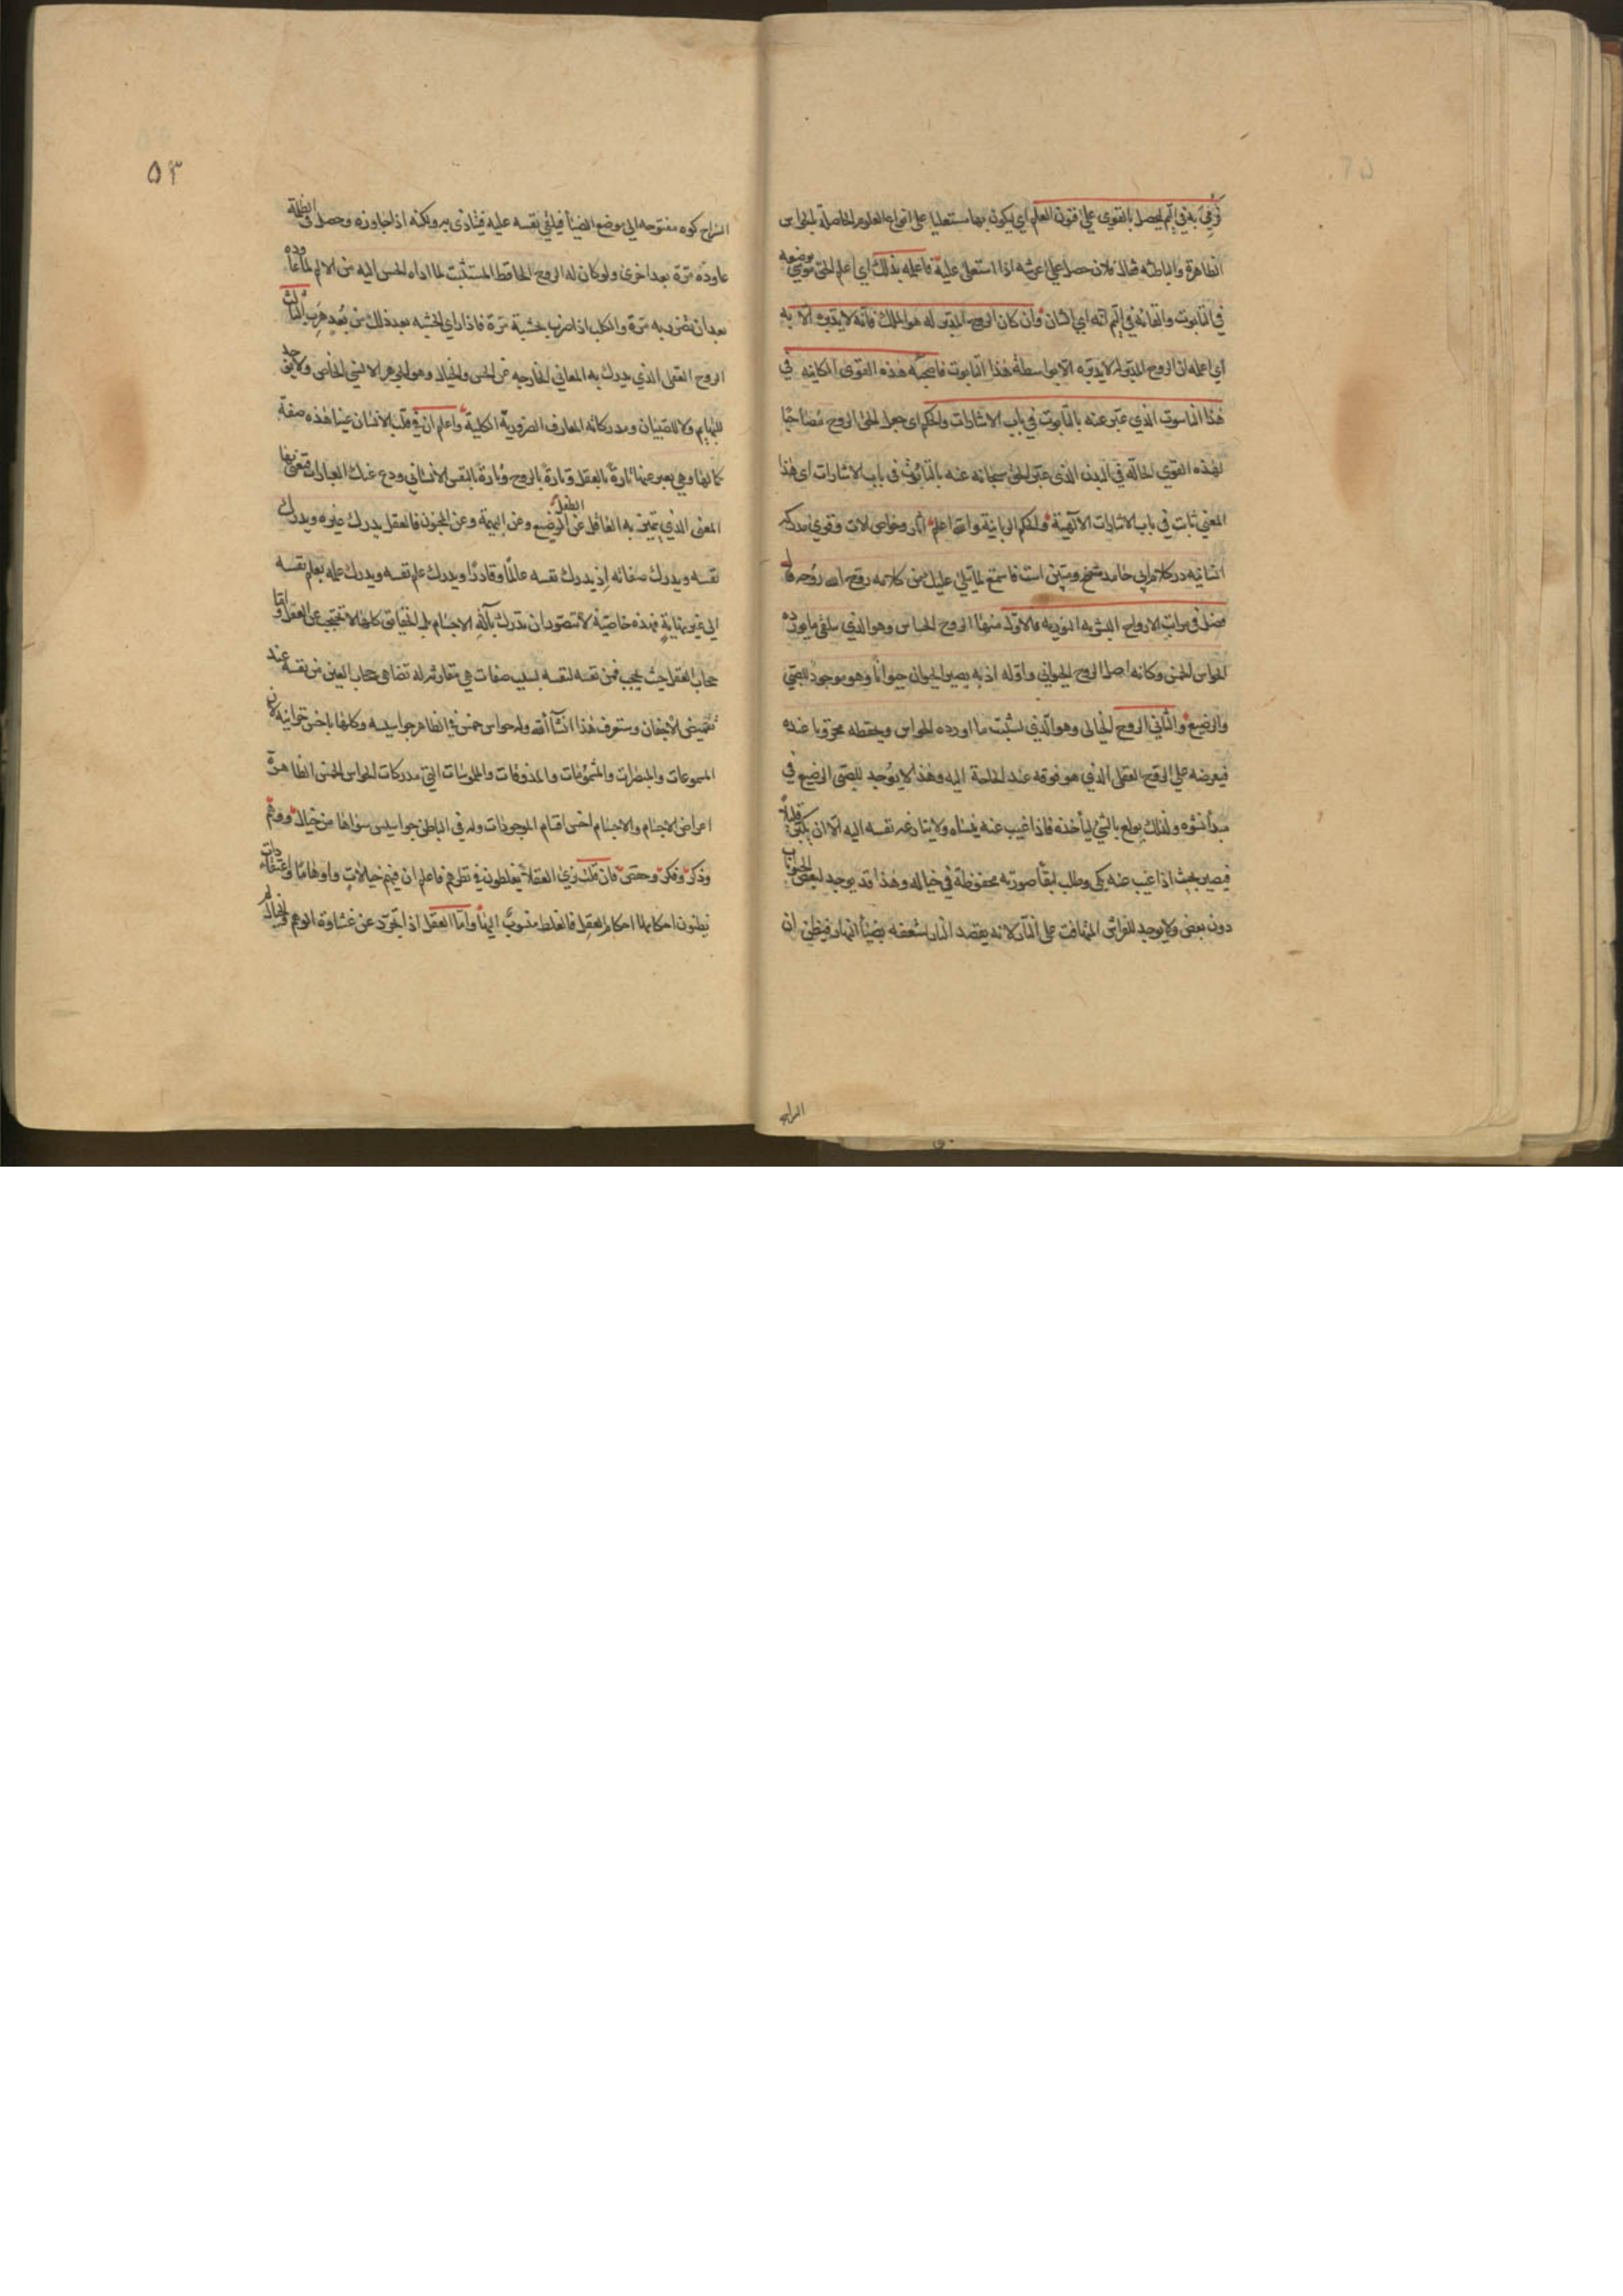 فرمي به في اليم ليحصل بالقوى على فنون العلم اي ليكون بها مستعليا على انواع العلوم الحاصلة للحواس
الظاهرة والباطنة يقال فلان حصل على عرشه اذا استعلى عليه فاعلمه بذلك اي اعلم الحق موسى بوضعه
في التابوت والقائه في اليم انه اي الشان وان كان الروح المدبر له هو الملك فانه لا يدبره الا به
اي اعلمه ان الروح المدبر له لا يدبره الا بواسطة هذا التابوت فاصحبه هذه القوى الكاينة في
هذا الناسوت الذي عبر عنه بالتابوت في باب الاشارات والحكم اي جعل الحق الروح مصاحبا
لهذه القوى الحالة في البدن الذي عبر الحق سبحانه عنه بالتابوت في باب الاشارات اي هذا
المعنى ثابت في باب الاشارات الالهية والحكم الربانية والله اعلم آثار وخواص آلات وقوى مدركه
انسانيه در كلام ابي حامد مشرح ومبين است فاستمع لما يتلى عليك من كلامه روح الله روحه قال
فصل في مراتب الارواح البشريه النورانيه فالاول منها الروح الحساس وهو الذي يتلقى ما يورده
الحواس الخمس وكانه اصل الروح الحيواني واوله اذ به يصير الحيوان حيوانا وهو موجود للصبي
والرضيع والثاني الروح الخيالي وهو الذي يستثبت ما اورده الحواس ويحفظه مخزونا عنده
فيعرضه على الروح العقلي الذي هو فوقه عند الحاجة اليه وهذا لا يوجد للصبي الرضيع في
مبدأ نشوه ولذلك يولع بالشئ ليأخذه فاذا غيب عنه ينساه ولا ينازعه نفسه اليه الا ان يكبر قليلا
فيصير بحيث اذا غيب عنه بكى وطلب لبقاء صورته محفوظة في خياله وهذا قد يوجد لبعض الحيوانات
دون بعض ولا يوجد للفراش المتهافت على النار لانه يقصد النار لشغفه بضياء النهار فيظن ان
الراج
٥٣
السراج كوه مفتوحه الى موضع الضياء فيلقي نفسه عليه فيتأذى به ولكنه اذا جاوزه وحصل في الظلمة
عاوده مرة بعد اخرى ولو كان له الروح الحافظ المستثبت لما اداه الحس اليه من الالم لما عاوده
بعد ان تضرر به مرة والكلب اذا ضرب بخشبة مرة فاذا راى الخشبه بعد ذلك من بعد هرب الثالث
الروح العقلي الذي يدرك به المعاني الخارجه عن الحس والخيال وهو الجوهر الانسي الخاص ولا يوجد
للبهايم ولا للصبيان ومدركاته المعارف الضرورية الكلية واعلم ان في قلب الانسان عينا هذه صفة
كمالها وهي يعبر عنها تارة بالعقل وتارة بالروح وتارة بالنفس الانساني ودع عنك العبارات فنعني بها
المعنى الذي يتميز به العاقل عن الطفل الرضيع وعن البهيمة وعن المجنون فالعقل يدرك غيره ويدرك
نفسه ويدرك صفاته اذ يدرك نفسه عالما وقادرا ويدرك علم نفسه ويدرك علمه بعلم نفسه
الى غير نهاية فهذه خاصية لا تتصور ان تدرك بآلة الاجسام بل الحقايق كلها لا تحتجب عن العقل وانما
حجاب العقل حيث يحجب فمن نفسه لنفسه بسبب صفات هي مقارنة له تضاهي حجاب العين من نفسه عند
تغميض الاجفان وستعرف هذا انشاء الله وله حواس خمس في الظاهر جواسيسه وكلها باخس خزاينه لان
المسموعات والمبصرات والمشمومات والمذوقات والملموسات التي مدركات للحواس الخمس الظاهرة
اعراض الاجسام والاجسام اخس اقسام الموجودات وله في الباطن جواسيس سواها من خيال ووهم
وذكر وفكر وحفظ فان قلت نرى العقلاء يغلطون في نظرهم فاعلم ان فيهم خيالات واوهاما واعتقادات
يظنون احكامها احكام العقل فالغلط منسوب اليها واما العقل اذا تجرد عن غشاوة الوهم والخيال لم